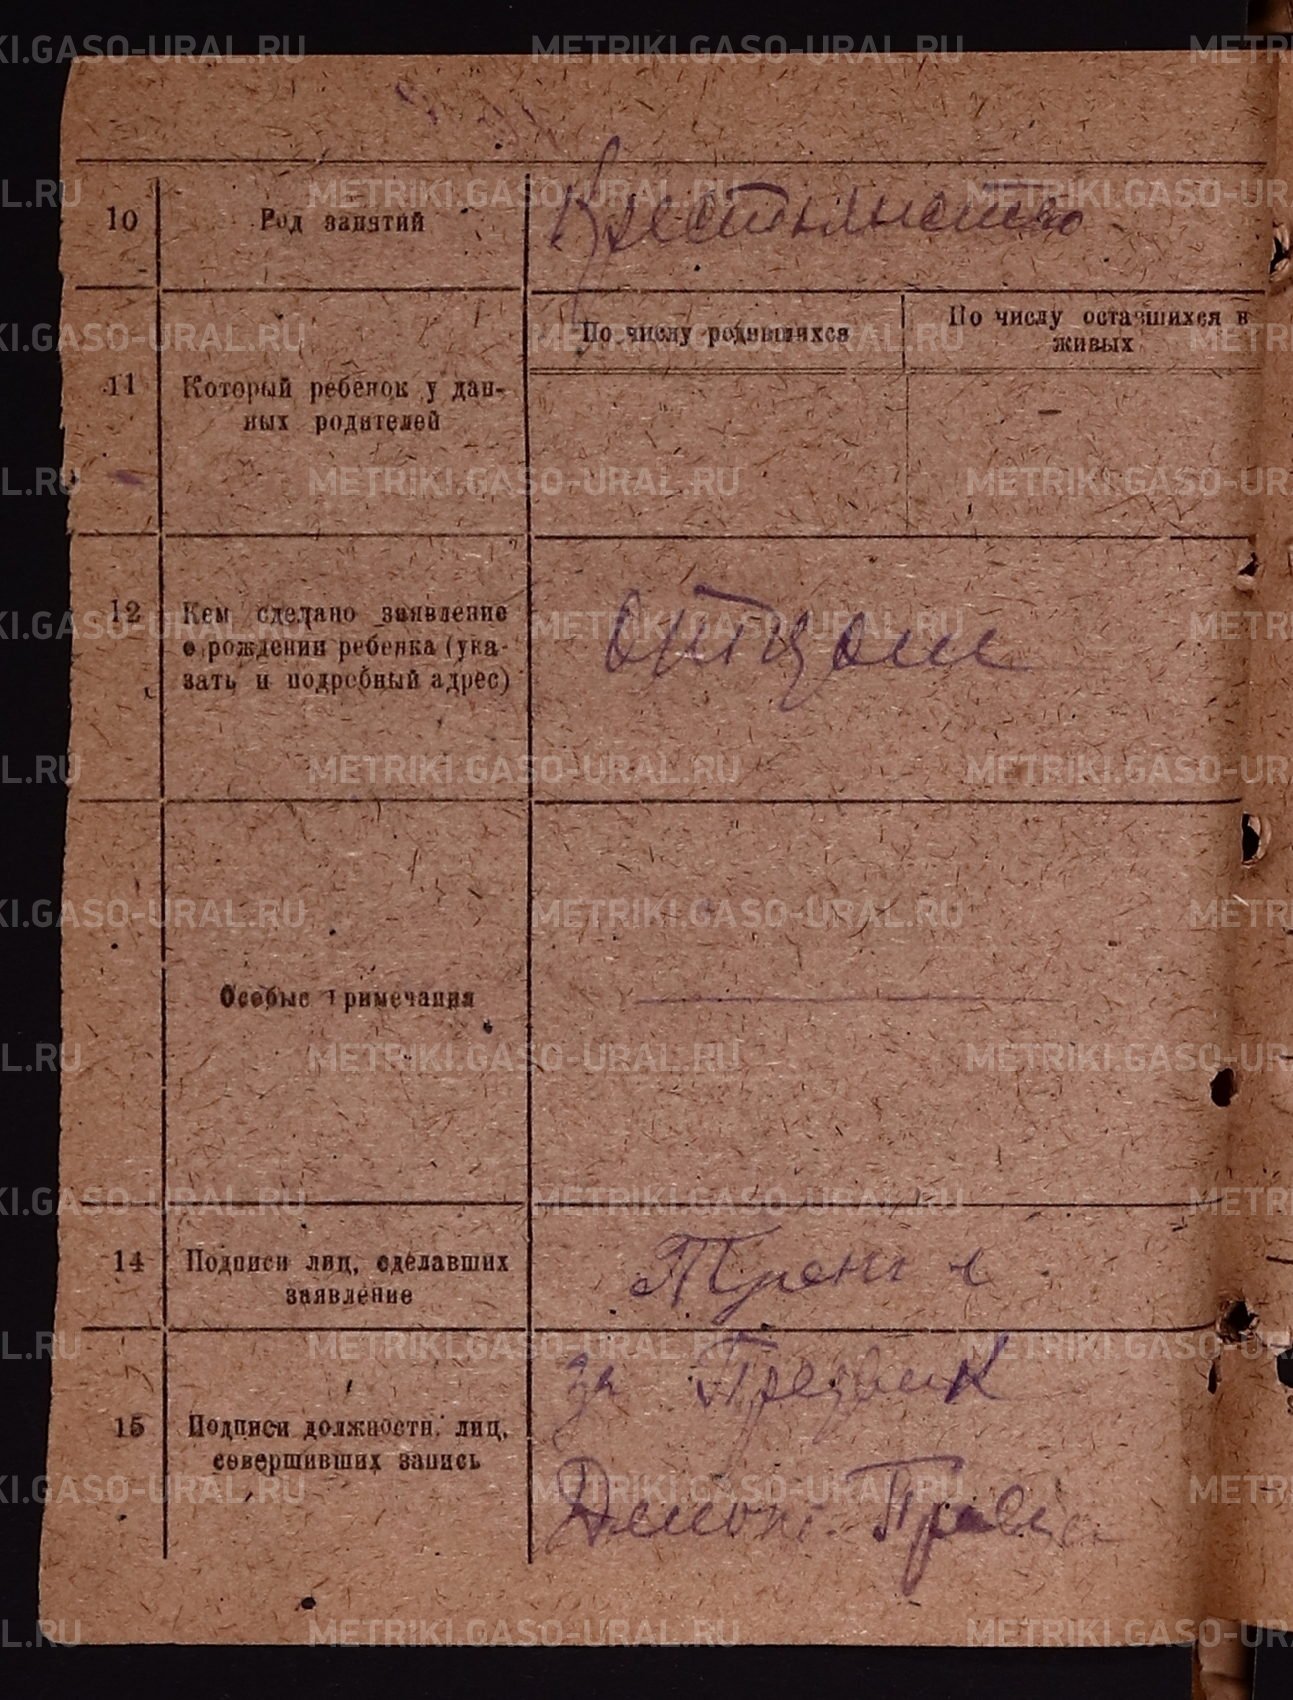 METRIKI.GASO-URAL.RU
10 Род занятий Крестьянство
11 Который ребенок у дан-
ных родителей
По числу родившихся
По числу оставшихся в
живых
-
12 Кем сделано заявление
о рождении ребенка (ука-
зать и подробный адрес)
отцом
Особые примечания
14 Подписи лиц, сделавших
заявление
15 Подписи должностн. лиц,
совершивших запись
за